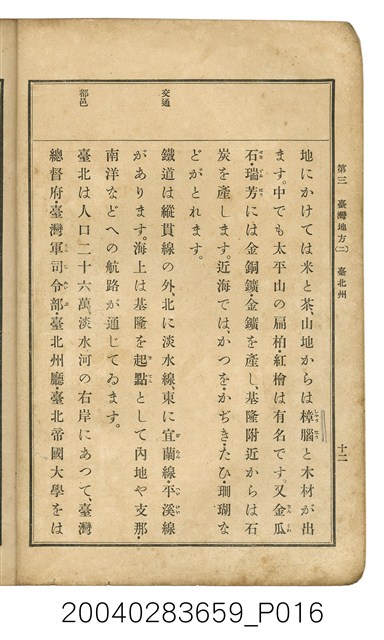 第三 臺灣地方(二) 臺北州
十二
地にかけては米と茶、山地からは樟腦と木材が出
ます。中でも太平山の扁柏紅檜は有名です。又金瓜
石・瑞芳には金銅鑛・金鑛を產し、基隆附近からは石
炭を產します。近海では、かつを・かぢき・たひ・珊瑚な
どがとれます。
交通
鐵道は縱貫線の外、北に淡水線、東に宜蘭線・平溪線
があります。海上は基隆を起點として內地や支那・
南洋などへの航路が通じてゐます。
都邑
臺北は人口二十六萬、淡水河の右岸にあつて、臺灣
總督府・臺灣軍司令部・臺北州廳・臺北帝國大學をは
20040283659_P016